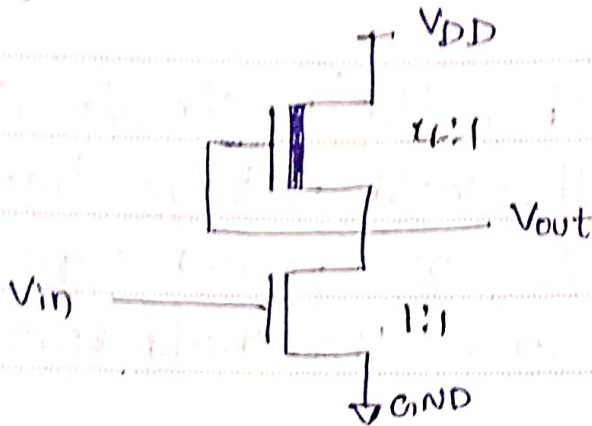 VDD
4:1
Vout
Vin
1:1
GND